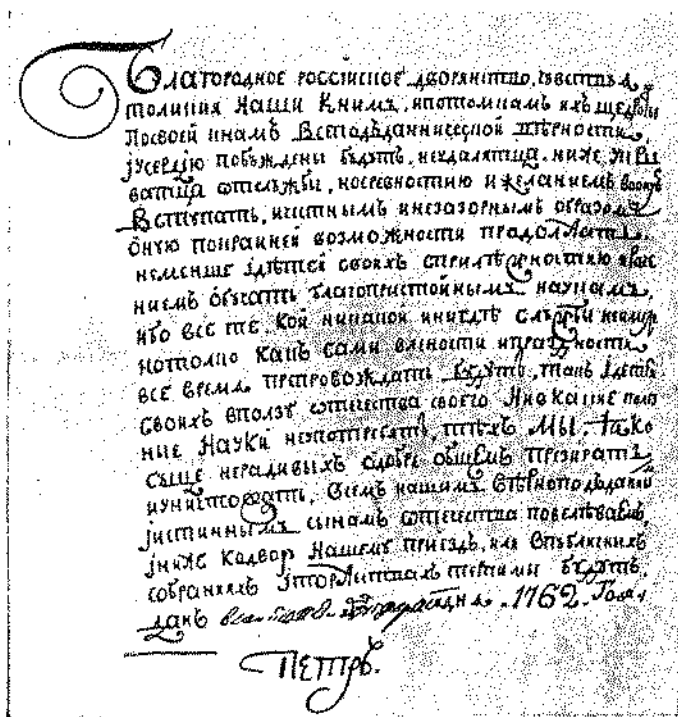 Благородное россииское дворянство,
толикия Наши Книмъ, ипотомкамъ ихъ щедроты
Посвоей кнамъ Всеподданнической верности
јусердію побуждены будутъ, неудалятца, ниже укры
ватца отслужбы, носревностию ижеланиемъ воную
Вступать, ичестнымъ инезазорнымъ образомъ
ону́ю покрайней возможности продолжать,
неменше їдѣтей своихъ сприлѣжностию
ниемъ обучать благопристойнымъ наукамъ,
ибо все те, кои никакой инигдѣ службы неимѣ
нотолко какъ сами влености ипраздности
все время препровождать будутъ, такъ їдѣтей
своихъ вползу отечества своего Нивкакие поле
ные Науки неупотреблять, тѣхъ Мы, јако
суще нерадивыхъ одобре общемъ презирать
иуничтожать, Всемъ нашимъ Вѣрноподданнымъ
јистиннымъ сынамъ отечества повелѣваемъ,
јниже Кодвору Нашему приездъ, или Впубличныхъ
собранияхъ јторжествахъ терпимы будутъ.
данъ 1762. Года
Петръ.